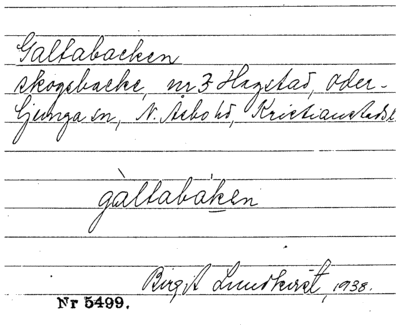 Galtabacken
skogsbacke, nr 3 Hagstad, Oder-
ljunga sn, N. Åsbo hd, Kristianstads l.
gàltabáken
Birgit Lundkvist, 1938.
Nr 5499.